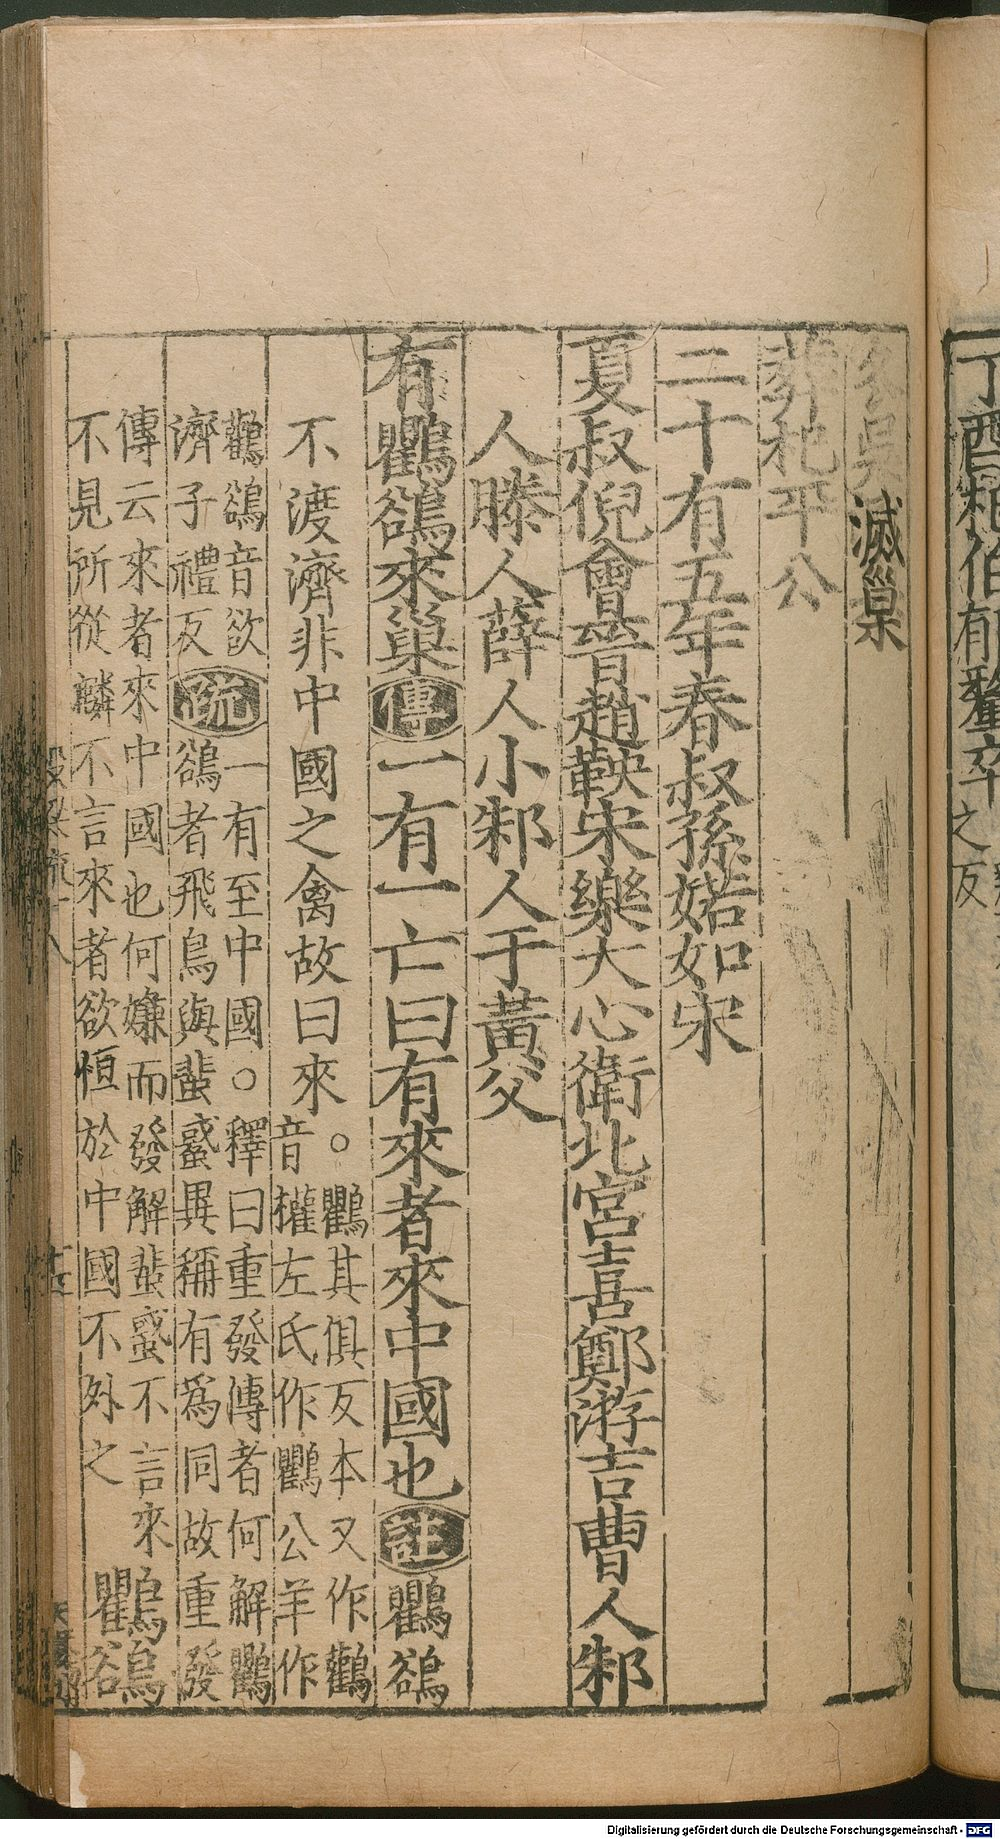 丁酉杞伯有釐卒之反
冬吳滅巢
葬杞平公
二十有五年春叔孫婼如宋
夏叔倪會晉趙鞅宋樂大心衛北宮喜鄭游吉曹人邾
人滕人薛人小邾人于黃父
有鸜鵒來巢傳一有一亡曰有來者來中國也註鸜鵒
不渡濟非中國之禽故曰來。鸜其俱反本又作鸛
音權左氏作鸜公羊作
鸛鵒音欲
濟子禮反疏一有至中國。釋曰重發傳者何解鸜
鵒者飛鳥與蜚蜮異稱有爲同故重發
傳云來者來中國也何嫌而發解蜚蜮不言來
不見所從麟不言來者欲恒於中國不外之鸜鵒
Digitalisierung gefördert durch die Deutsche Forschungsgemeinschaft - DFG